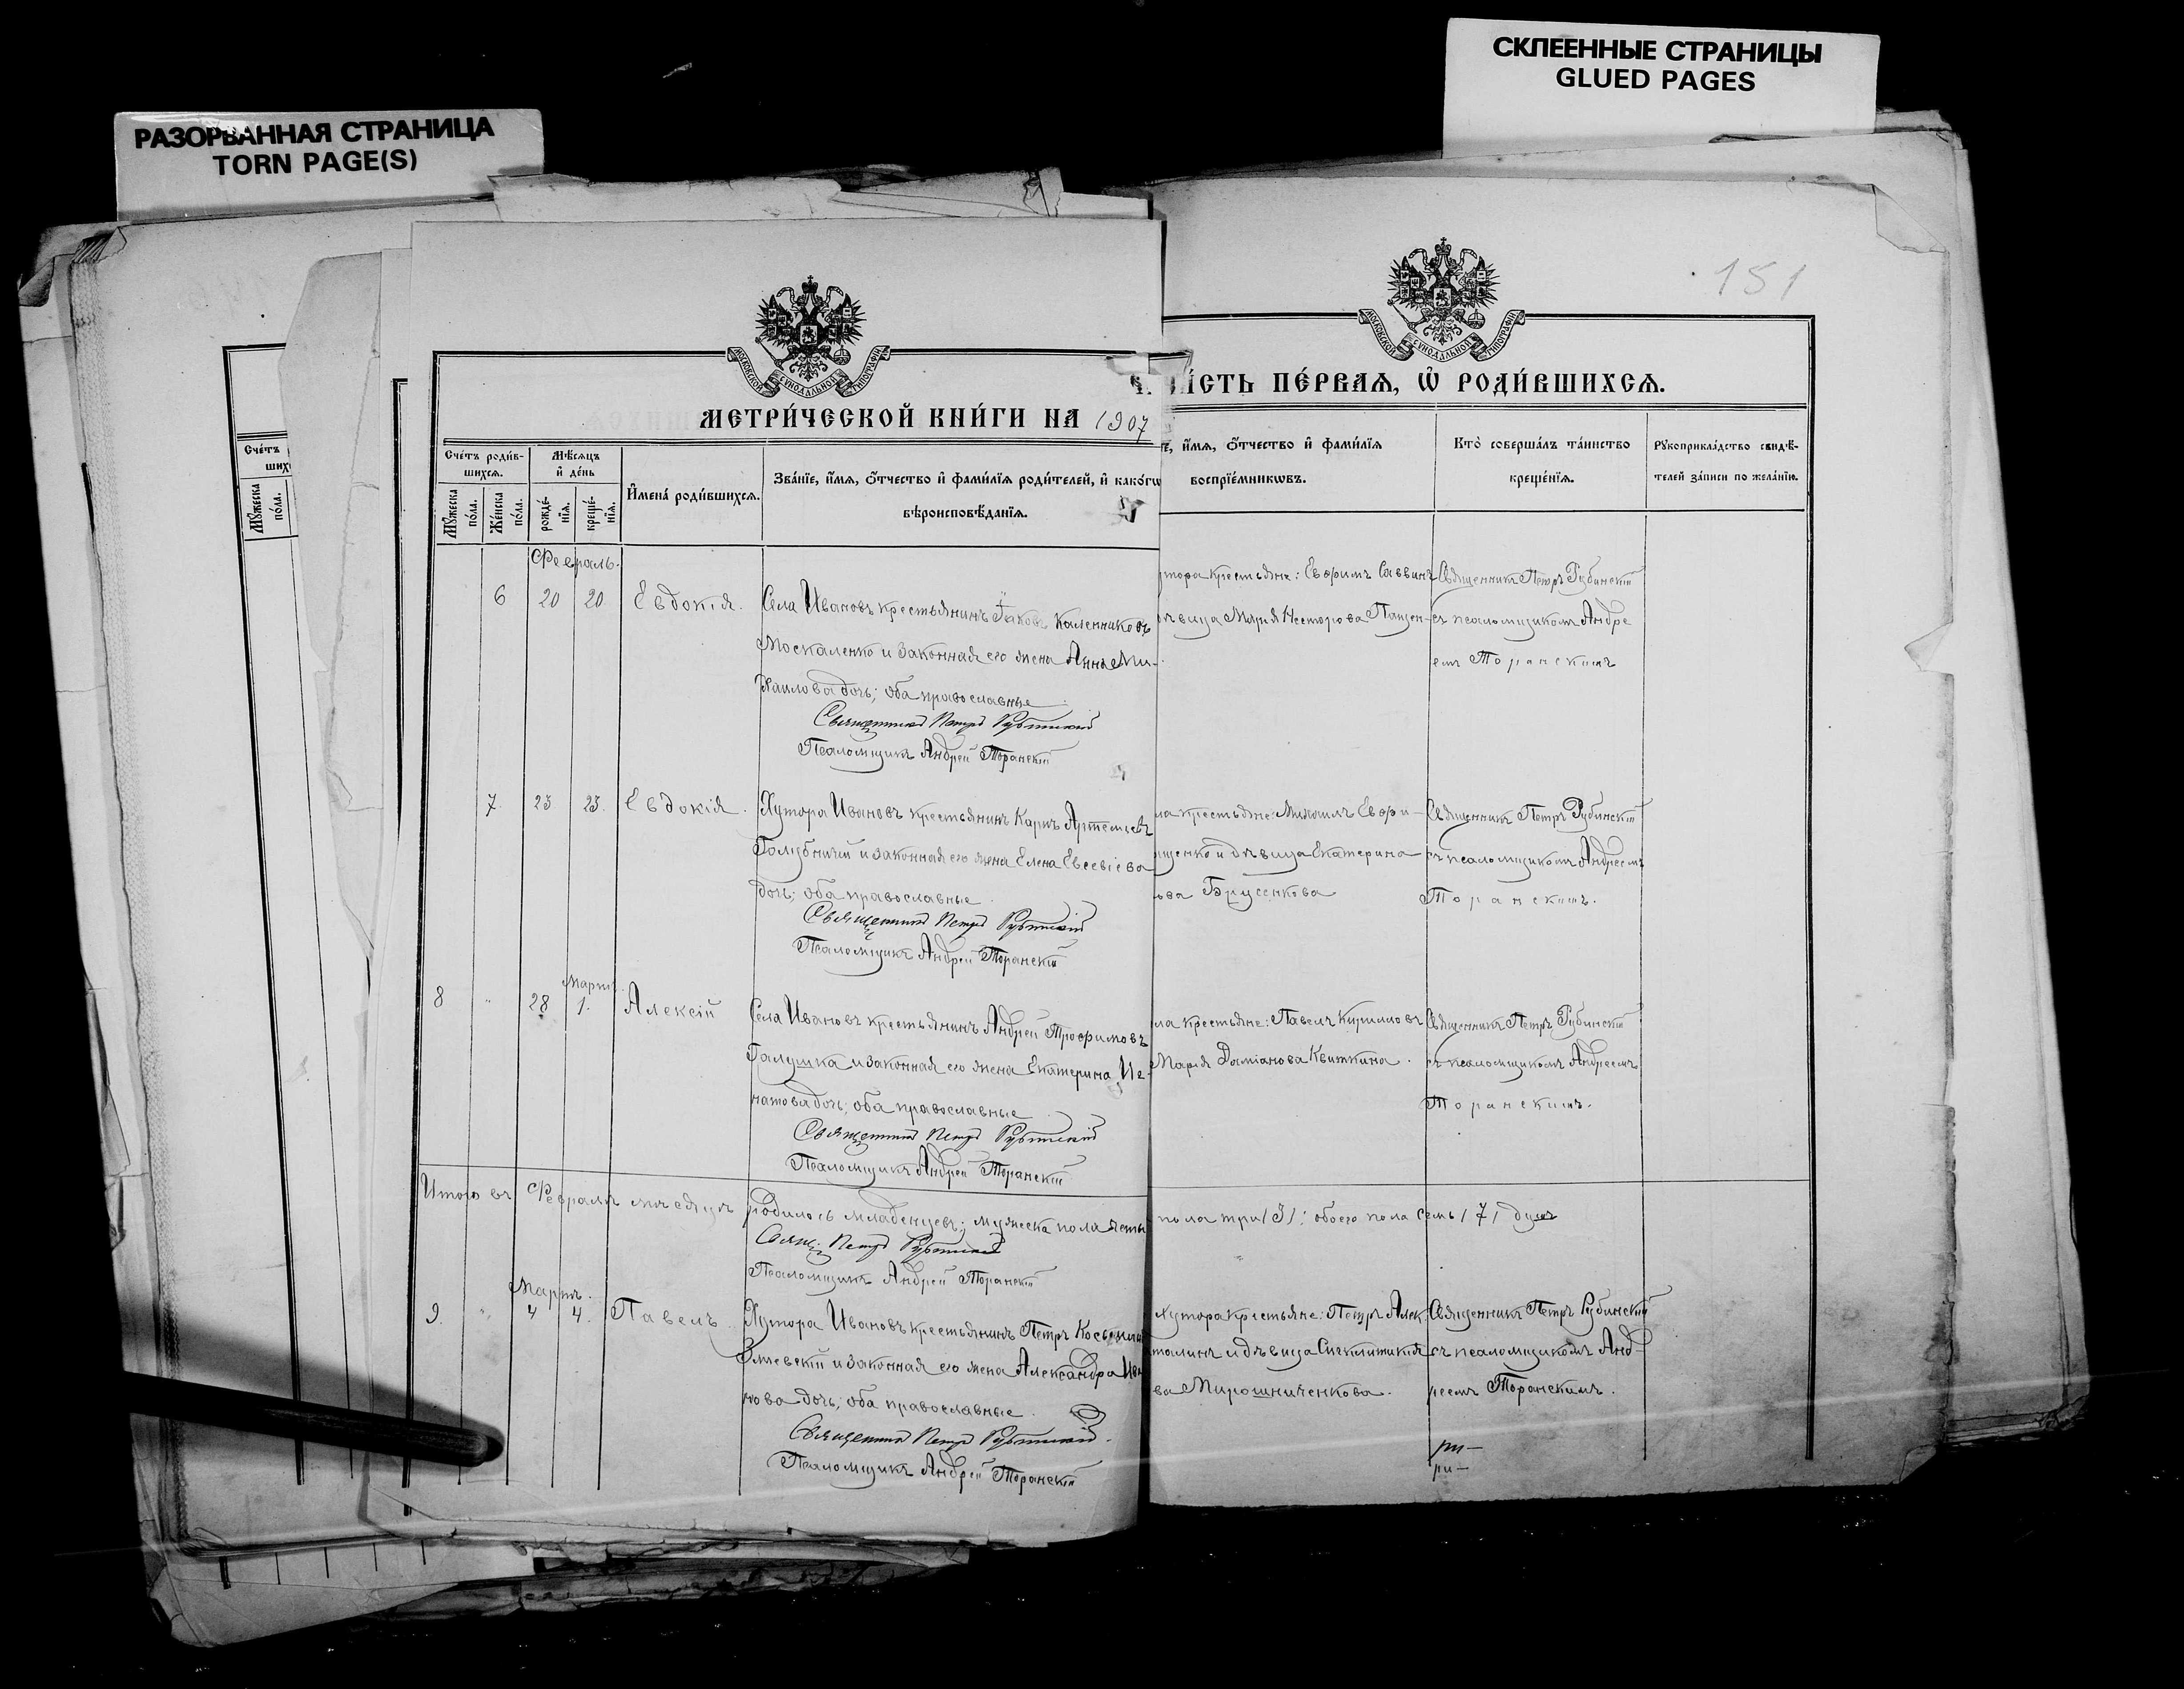 РАЗОРВАННАЯ СТРАНИЦА
TORN PAGE(S)
СКЛЕЕННЫЕ СТРАНИЦЫ
GLUED PAGES
151
МОСКОВСКОЙ СѴНОДАЛЬНОЙ ТИПОГРАФІИ
МОСКОВСКОЙ СѴНОДАЛЬНОЙ ТИПОГРАФІИ
МЕТРИ́ЧЕСКОЙ КНИ́ГИ НА 1907
ПЕ́РВАѦ, Ѡ҆ РОДИ́ВШИХСѦ.
Сче́тъ
ших
Мꙋ́жеска по́ла.
Сче́тъ роди́в-
шихсѧ.
Мѣ́сѧцъ
и҆ де́нь
Мꙋ́жеска по́ла.
Же́нска по́ла.
рожде́-
нїѧ.
креще́-
нїѧ.
И҆мена̀ роди́вшихсѧ.
Зва́нїе, и҆́мѧ, ѻ҆́тчество и҆ фами́лїѧ роди́телей, и҆ како́гѡ
вѣроисповѣ́данїѧ.
и҆́мѧ, ѻ҆́тчество и҆ фами́лїѧ
воспрїе́мникѡвъ.
Кто̀ соверша́лъ та́инство
креще́нїѧ.
Рꙋкоприкла́дство свидѣ́-
телей за́писи по жела́нїю.
Февраль.
6 20 20 Евдокія. Села Ивановъ крестьянинъ Іаковъ Каленниковъ
Москаленко и законная его жена Анна Ми-
хаилова дочь; оба православные
Священникъ Петръ Рубинскій
Псаломщикъ Андрей Торанскій
тора крестьяне: Евфимъ Саввинъ
вица Марія Несторова Пащен-
Священникъ Петръ Рубинскій
съ псаломщикомъ Андре
емъ Торанскимъ
7. 23 23. Евдокія. Хутора Ивановъ крестьянинъ Карпъ Артемьевъ
Голубничій и законная его жена Елена Евсевіева
дочь; оба православные
Священникъ Петръ Рубинскій
Псаломщикъ Андрей Торанскій
ла крестьяне: Михаилъ Евфи-
щенко и дѣвица Екатерина
ова Брусенкова
Священникъ Петръ Рубинскій
съ псаломщикомъ Андреемъ
Торанскимъ.
Мартъ.
8 " 28 1. Алексій Села Ивановъ крестьянинъ Андрей Трофимовъ
Галушка и законная его жена Екатерина Иг-
натова дочь; оба православные
Священникъ Петръ Рубинскій
Псаломщикъ Андрей Торанскій
ла крестьяне: Павелъ Кирилловъ
Марія Даміанова Квиткина.
Священникъ Петръ Рубинскій
съ псаломщикомъ Андреемъ
Торанскимъ.
Итого въ Февралѣ мѣсяцѣ родилось младенцевъ; мужеска пола четы
пола три /3/: обоего пола семь /7/ душъ
Свящ. Петръ Рубинскій
Псаломщикъ Андрей Торанскій
Мартъ.
9. " 4 4. Павелъ Хутора Ивановъ крестьянинъ Петръ Косьмин
Зміевскій и законная его жена Александра Ива
нова дочь; оба православные
Священникъ Петръ Рубинскій.
Псаломщикъ Андрей Торанскій
Хутора крестьяне: Петръ Алек.
талинъ и дѣвица Сигклитикія
ва Мирошниченкова.
Священникъ Петръ Рубинскій
съ псаломщикомъ Анд-
реемъ Торанскимъ.
ри—
ри—